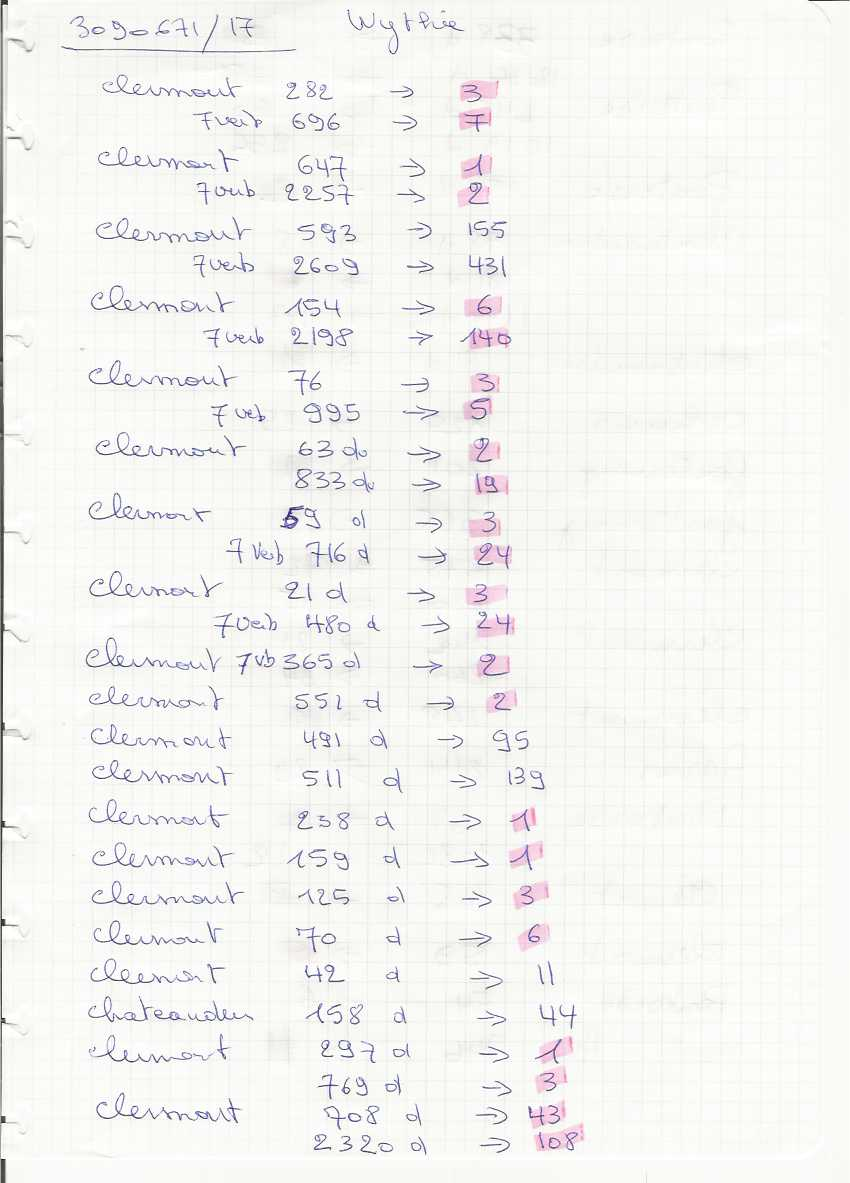 3090671/17 Wythie
Clermont 282 → 3
7verb 696 → 7
Clermont 647 → 1
7verb 2257 → 2
Clermont 593 → 155
7verb 2609 → 431
Clermont 154 → 6
7verb 2198 → 140
Clermont 76 → 3
7verb 995 → 5
Clermont 63 d → 2
833 d → 19
Clermont 59 d → 3
7verb 716 d → 24
Clermont 21 d → 3
7verb 480 d → 24
Clermont 7vb 365 d → 2
Clermont 551 d → 2
Clermont 491 d → 95
Clermont 511 d → 139
Clermont 238 d → 1
Clermont 159 d → 1
Clermont 125 d → 3
Clermont 70 d → 6
Clermont 42 d → 11
Chateaudun 158 d → 44
Clermont 297 d → 1
769 d → 3
Clermont 708 d → 43
2320 d → 108